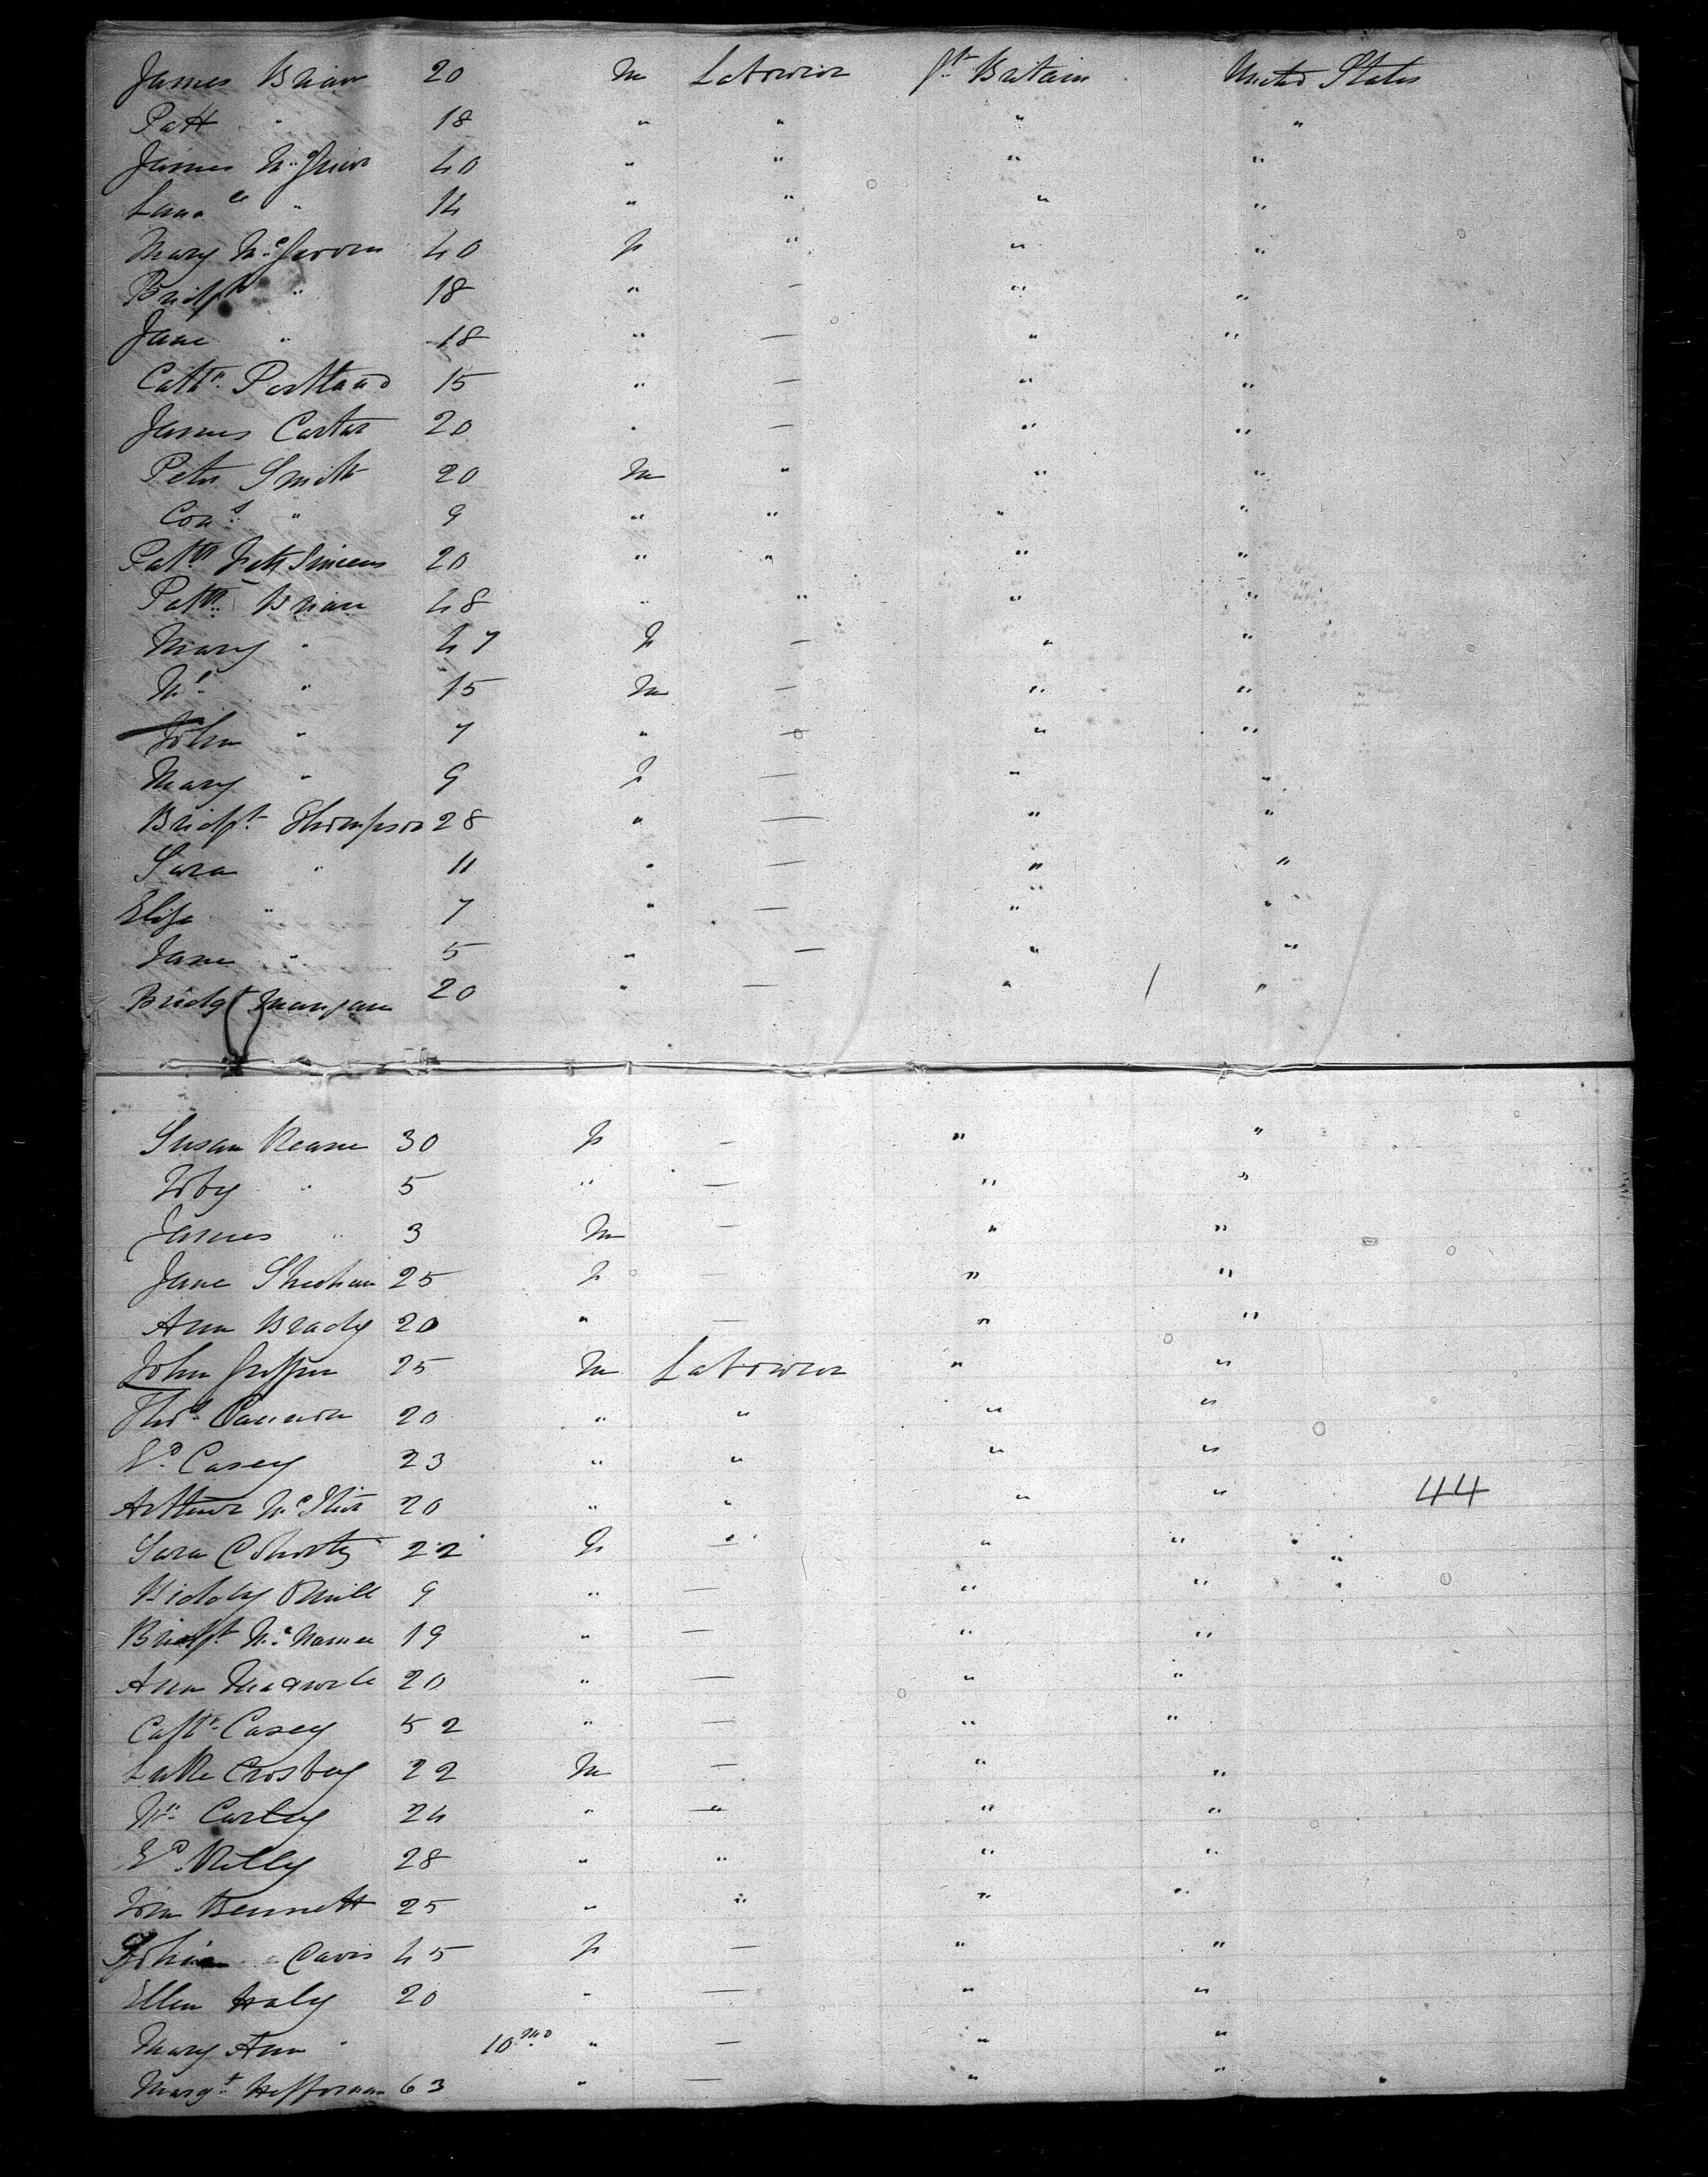 James Brian 20 M Labourer Gt Britain United States
Patt " 18 " " " "
James Mc 40 " " " "
" 14 " " " "
Mary McGovern 40 F " " "
Bridgt " 18 " — " "
Jane " 18 " — " "
Cathn Portland 15 " — " "
James Carter 20 " — " "
Peter Smith 20 M " " "
" 9 " " " "
Pattk Fitt Simens 20 " " " "
Pattk Brian 48 " " " "
Mary " 47 F — " "
Ml " 15 M — " "
John " 7 " — " "
Mary " 9 F — " "
Bridgt Thompson 28 " — " "
Sara " 11 " — " "
Eliza " 7 " — " "
Jane " 5 " — " "
Bridgt Mangan 20 " — " "
Susan Keane 30 F — " "
" 5 " — " "
James " 3 M — " "
Jane Sheehan 25 F — " "
Ann Brady 20 " — " "
John Griffin 25 M Labourer " "
Thos Cannon 20 " " " "
Ed Casey 23 " " " "
Arthur Mc 20 " " " " 44
Sara 22 F — " "
Biddy ONeill 9 " — " "
Bridgt McNamee 19 " — " "
Ann Maxwell 20 " — " "
Cathn Casey 52 " — " "
Luke Crosbey 22 M — " "
Wm Curley 24 " " " "
Ed Kelly 28 " " " "
John Bennett 25 " " " "
Davis 45 F — " "
Ellen Haly 20 " — " "
Mary Ann " 10 mo " — " "
Margt Heffernan 63 " — " "